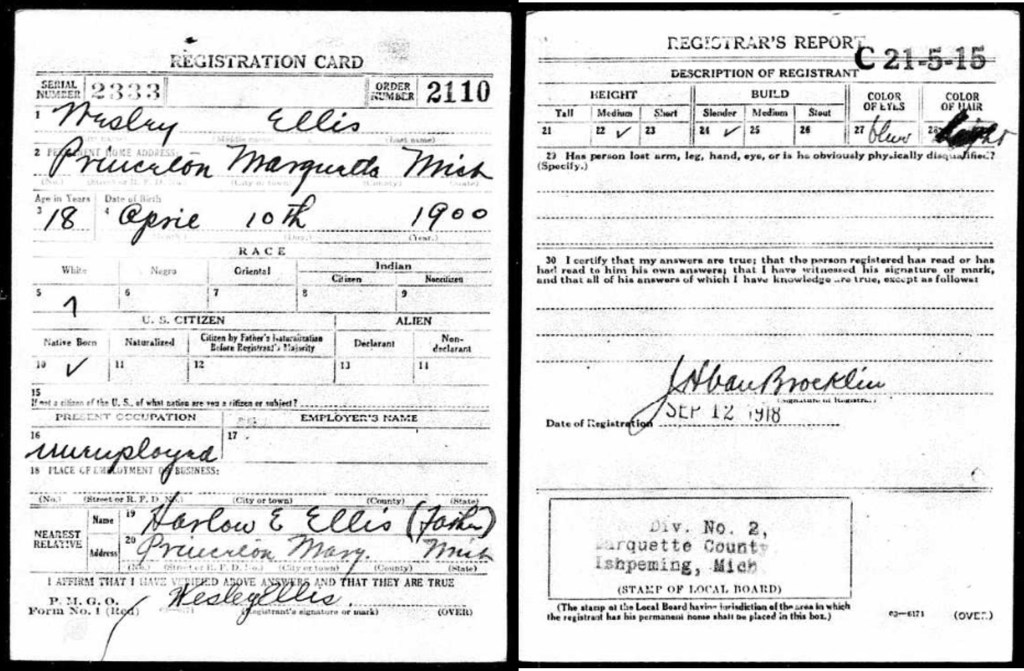 REGISTRATION CARD
SERIAL NUMBER 2333 ORDER NUMBER 2110
1 Wesley Ellis
(Last name)
2 PERMANENT HOME ADDRESS:
Princeton Marquette Mich
(No.) (Street or R. F. D. No.) (City or town) (County) (State)
Age in Years Date of Birth
3 18 4 April 10th 1900
(Day.) (Year.)
RACE
White Negro Oriental Indian
Citizen Noncitizen
5 6 7 8 9
U. S. CITIZEN ALIEN
Native Born Naturalized Citizen by Father's Naturalization Before Registrant's Majority Declarant Non-declarant
10 ✓ 11 12 13 14
15
If not a citizen of the U. S., of what nation are you a citizen or subject?
PRESENT OCCUPATION EMPLOYER'S NAME
16 unemployed 17
18 PLACE OF EMPLOYMENT OR BUSINESS:
(No.) (Street or R. F. D. No.) (City or town) (County) (State)
NEAREST RELATIVE
Name 19 Harlow E Ellis (Father)
Address 20 Princeton Marq. Mich
(No.) (Street or R. F. D. No.) (City or town) (County) (State)
I AFFIRM THAT I HAVE VERIFIED ABOVE ANSWERS AND THAT THEY ARE TRUE
P. M. G. O.
Form No. 1 (Red) Wesley Ellis
(Registrant's signature or mark) (OVER)
REGISTRAR'S REPORT
C 21-5-15
DESCRIPTION OF REGISTRANT
HEIGHT BUILD COLOR OF EYES COLOR OF HAIR
Tall Medium Short Slender Medium Stout
21 22 ✓ 23 24 ✓ 25 26 27 blue 28 Light
29 Has person lost arm, leg, hand, eye, or is he obviously physically disqualified?
(Specify.)
30 I certify that my answers are true; that the person registered has read or has
had read to him his own answers; that I have witnessed his signature or mark,
and that all of his answers of which I have knowledge are true, except as follows:
J H Van Brocklin
(Signature of Registrar)
Date of Registration SEP 12 1918
Div. No. 2,
Marquette County
Ishpeming, Mich
(STAMP OF LOCAL BOARD)
(The stamp of the Local Board having jurisdiction of the area in which
the registrant has his permanent home shall be placed in this box.)
03-6171 (OVER)